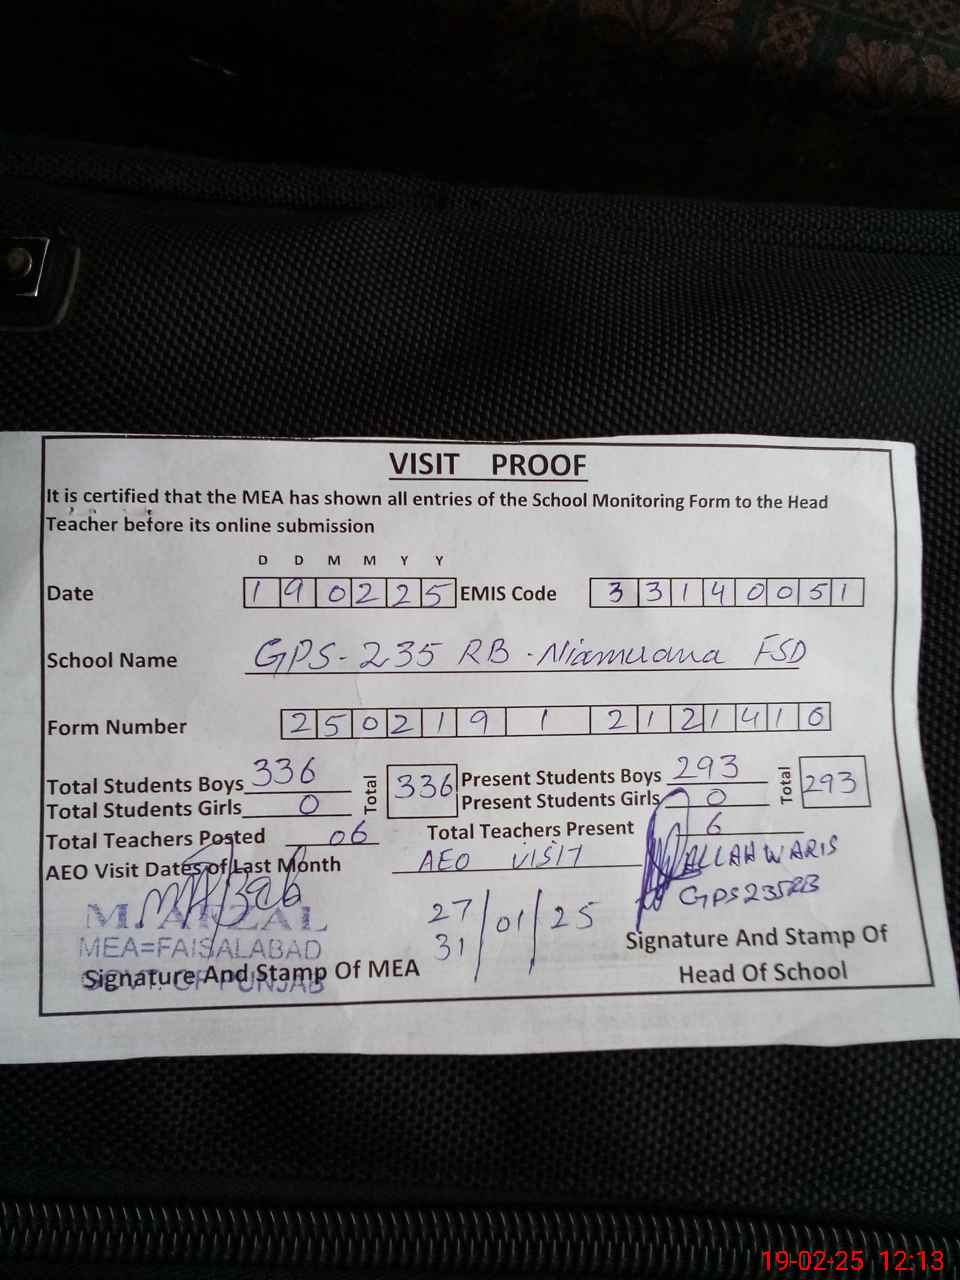 VISIT PROOF
It is certified that the MEA has shown all entries of the School Monitoring Form to the Head
Teacher before its online submission
D D M M Y Y
Date 190225 EMIS Code 33140051
School Name GPS-235 RB - Niamuana FSD
Form Number 2502191 212141 6
Total Students Boys 336 Total 336 Present Students Boys 293 Total 293
Total Students Girls 0 Present Students Girls 0
Total Teachers Posted 06 Total Teachers Present 6
AEO Visit Dates of Last Month AEO VISIT
ALLAH WARIS
GPS 235RB
27/01/25
31
M. AFZAL
MEA=FAISALABAD
GOVT. OF PUNJAB
Signature And Stamp Of MEA
Signature And Stamp Of
Head Of School
19-02-25 12:13